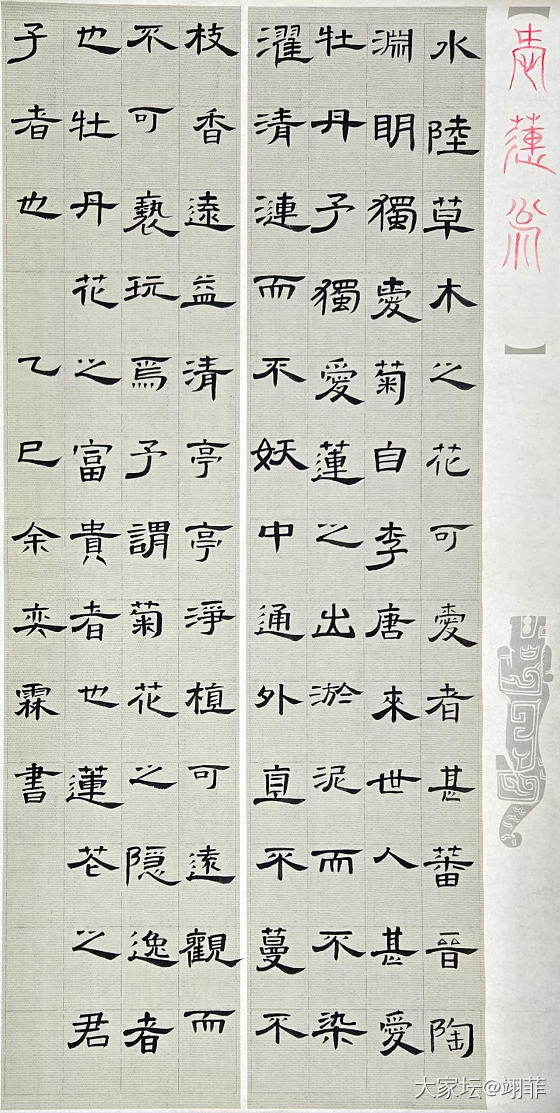 愛蓮
水陸草木之花可愛者甚蕃晉陶
淵明獨愛菊自李唐來世人甚愛
牡丹予獨愛蓮之出淤泥而不染
濯清漣而不妖中通外直不蔓不
枝香遠益清亭亭淨植可遠觀而
不可褻玩焉予謂菊花之隱逸者
也牡丹花之富貴者也蓮花之君
子者也 乙巳余奕霖書
大家坛@翊菲